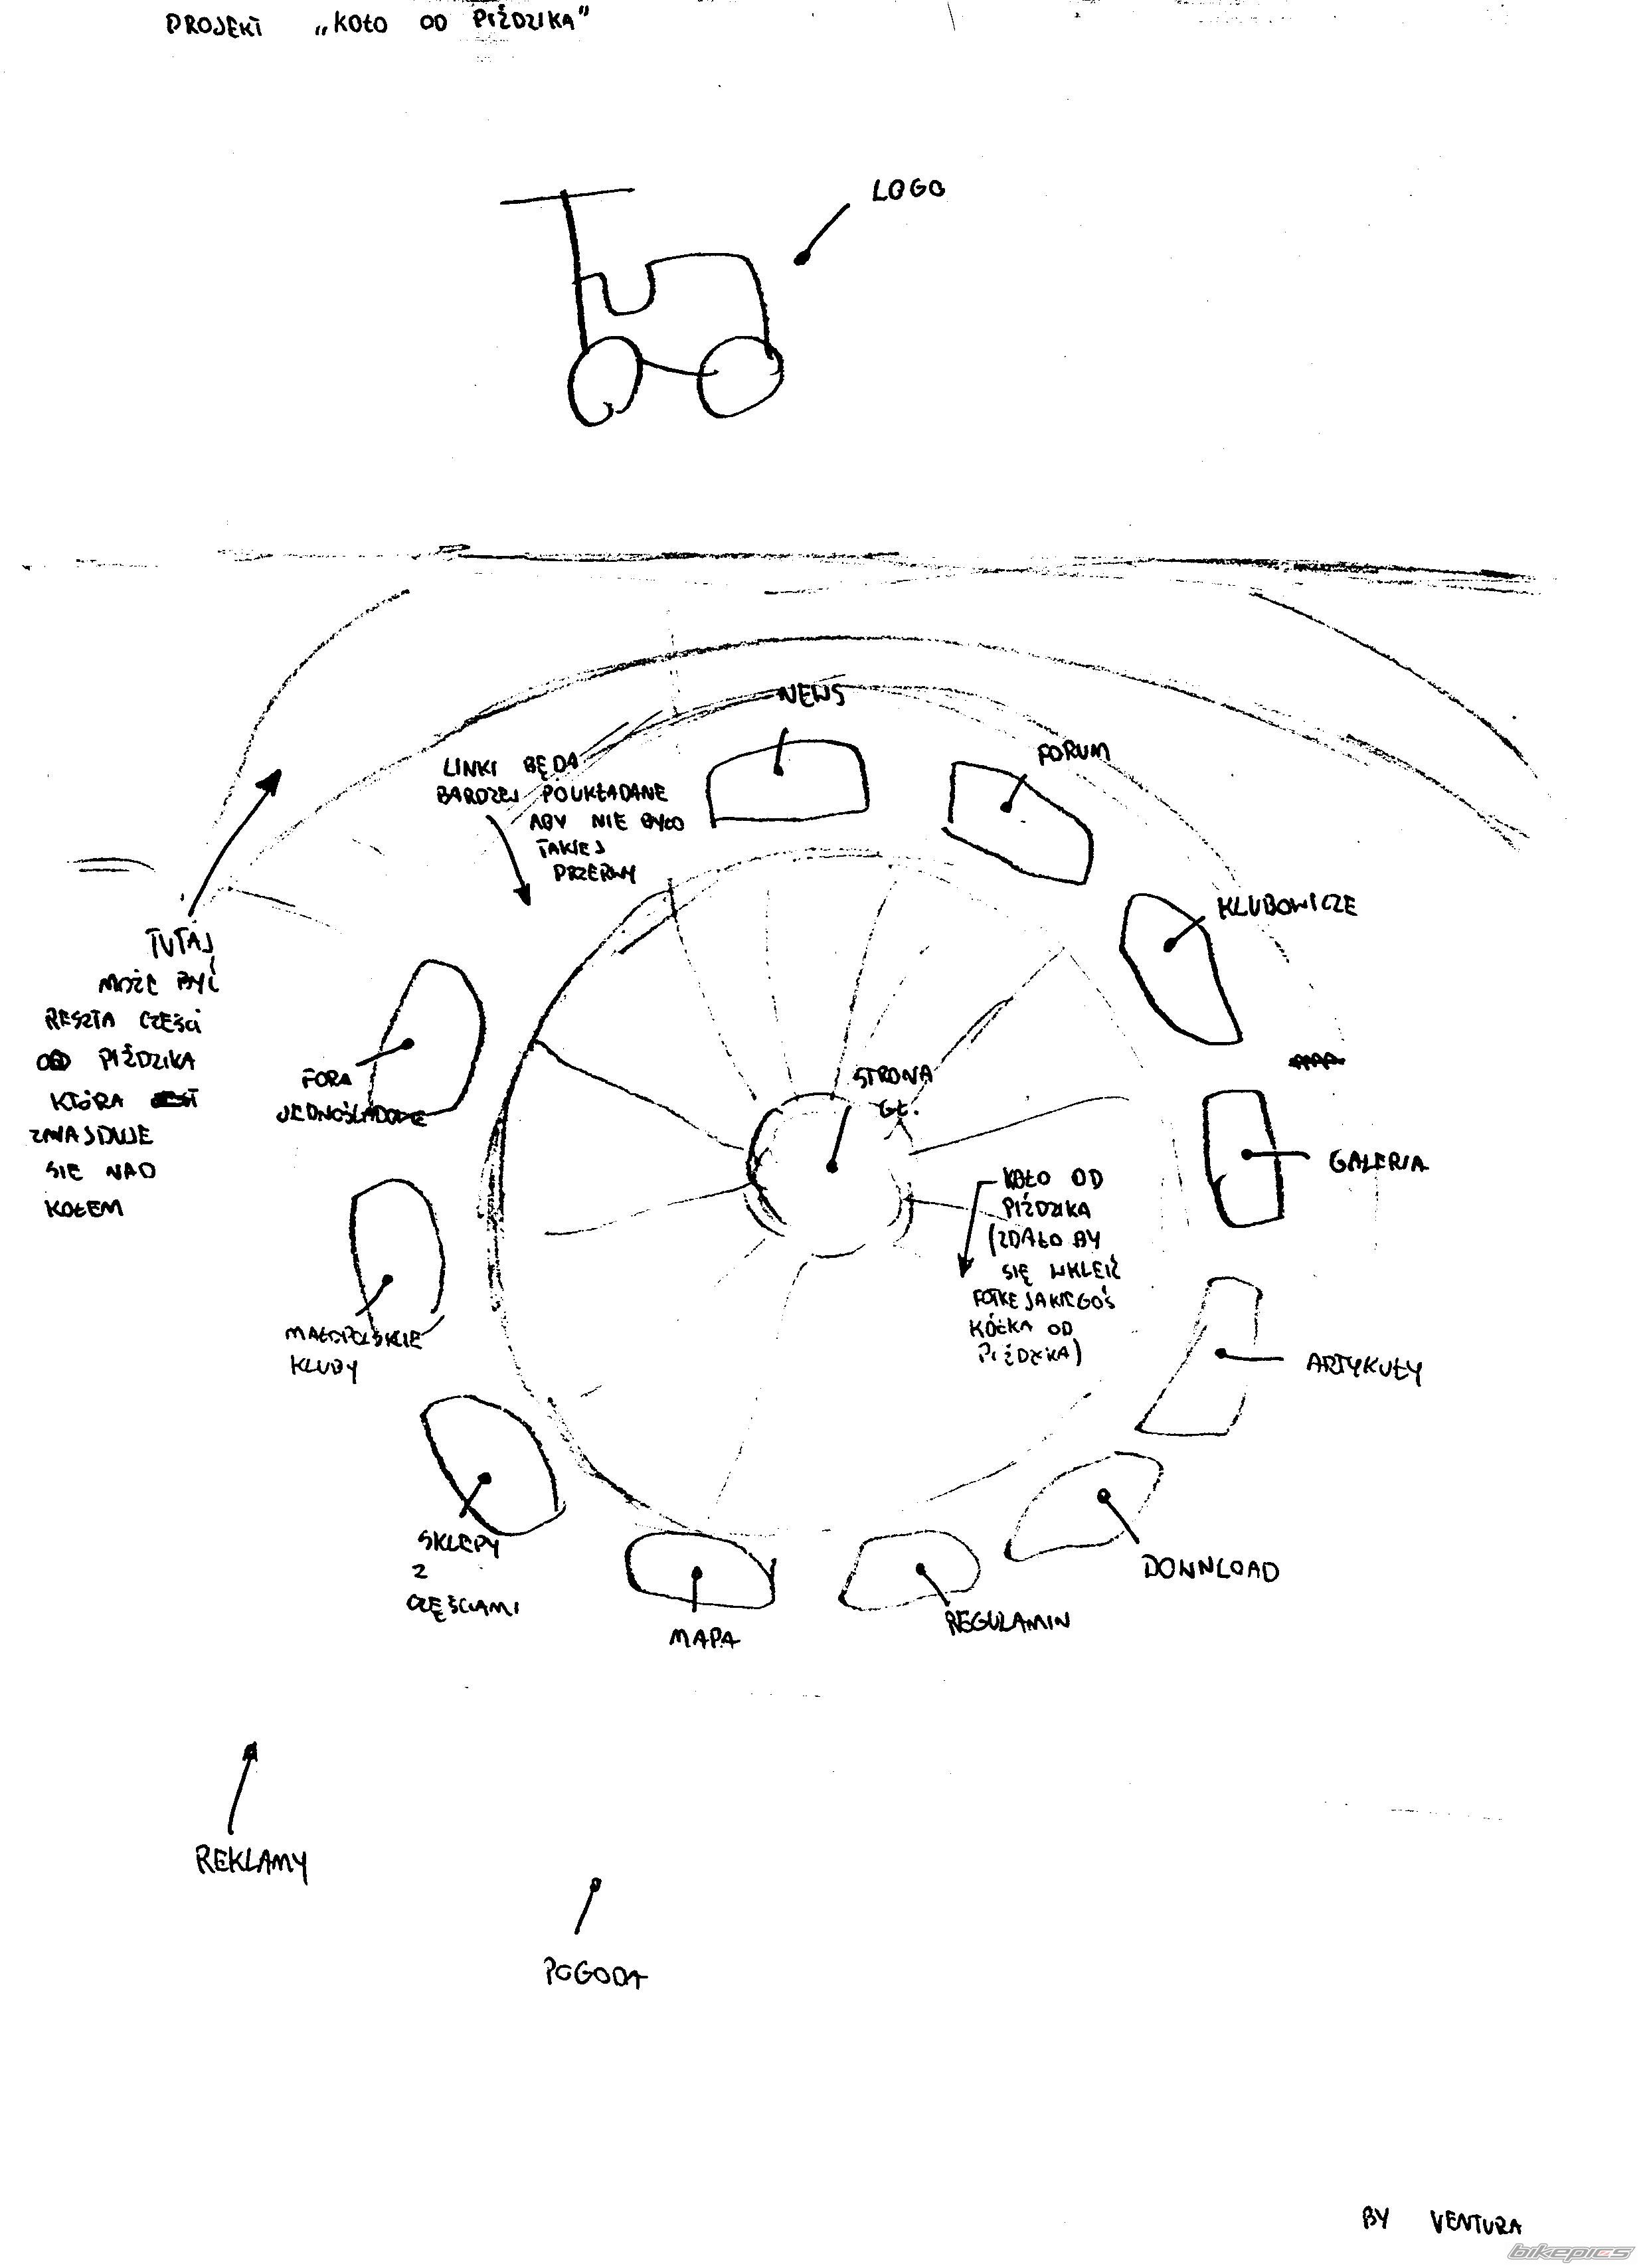 PROJEKT „KOŁO OD PIŹDZIKA"
LOGO
NEWS
FORUM
LINKI BĘDA
BARDZEJ POUKŁADANE
ABY NIE BYŁO
TAKIEJ
PRZERWY
KLUBOWICZE
TUTAJ
MOŻE BYĆ
RESZTA CZEŚCI
OD PIŹDZIKA
KTÓRA
ZNAJDUJE
SIE NAD
KOŁEM
FORA
JEDNOŚLADOWE
STRONA
GŁ.
GALERIA
KOŁO OD
PIŹDZIKA
(ZDAŁO BY
SIĘ WKLEIĆ
FOTKE JAKIEGOŚ
KÓŁKA OD
PIŹDZIKA)
MAŁOPOLSKIE
KLUBY
ARTYKUŁY
SKLEPY
Z
CZĘŚCIAMI
DOWNLOAD
REGULAMIN
MAPA
REKLAMY
POGODA
BY VENTURA
bikepics